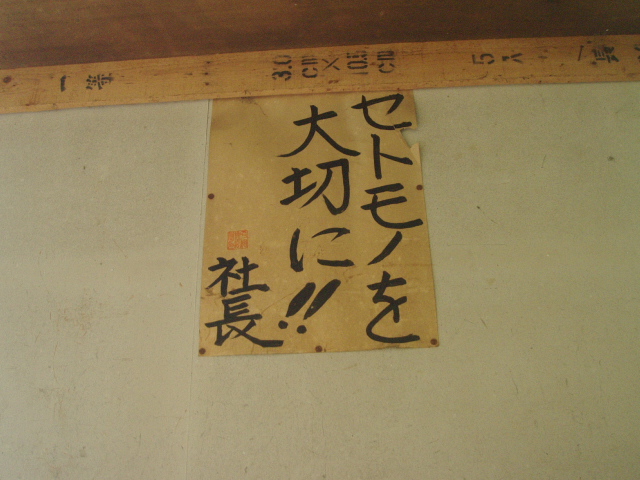 一等 3.0cm×10.5cm 5入 一長
セトモノを
大切に!!
社長